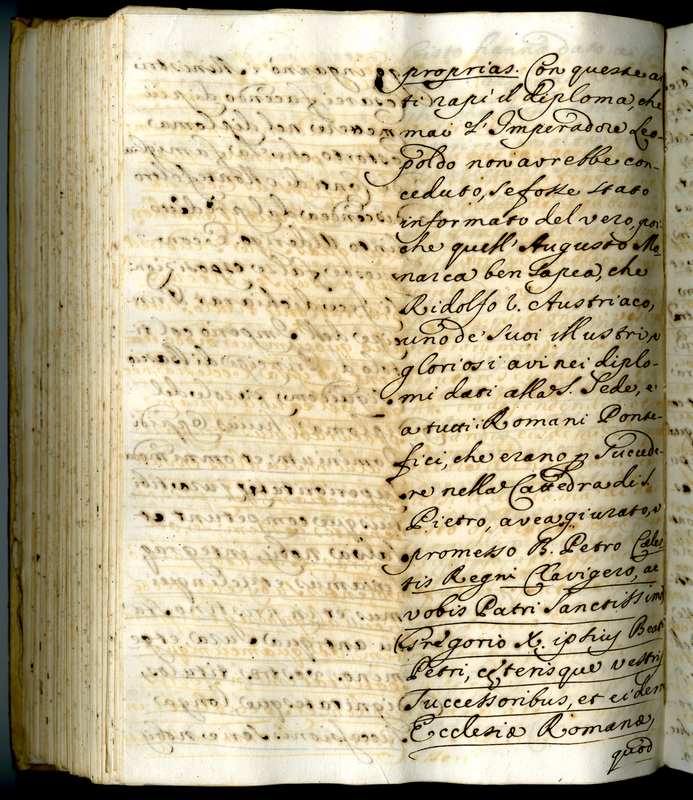 proprias. Con queste ar
ti rapì il diploma, che
mai L'Imperadore Leo-
poldo non avrebbe con-
ceduto, se fosse stato
informato del vero, poi
che quell'Augusto Mo
narca ben sapea, che
Ridolfo I. Austriaco,
uno de' suoi illustri, e
gloriosi avi nei diplo-
mi dati alla S. Sede, e
a tutti i Romani Ponte-
fici, che erano p succede-
re nella Cattedra di S.
Pietro, avea giurato, e
promesso B. Petro Cæles
tis Regni Clavigero, ac
vobis Patri Sanctissimo
Gregorio X. ipsius Beati
Petri, cæterisque vestris
Successoribus, et eidem
Ecclesiæ Romanæ,
quod